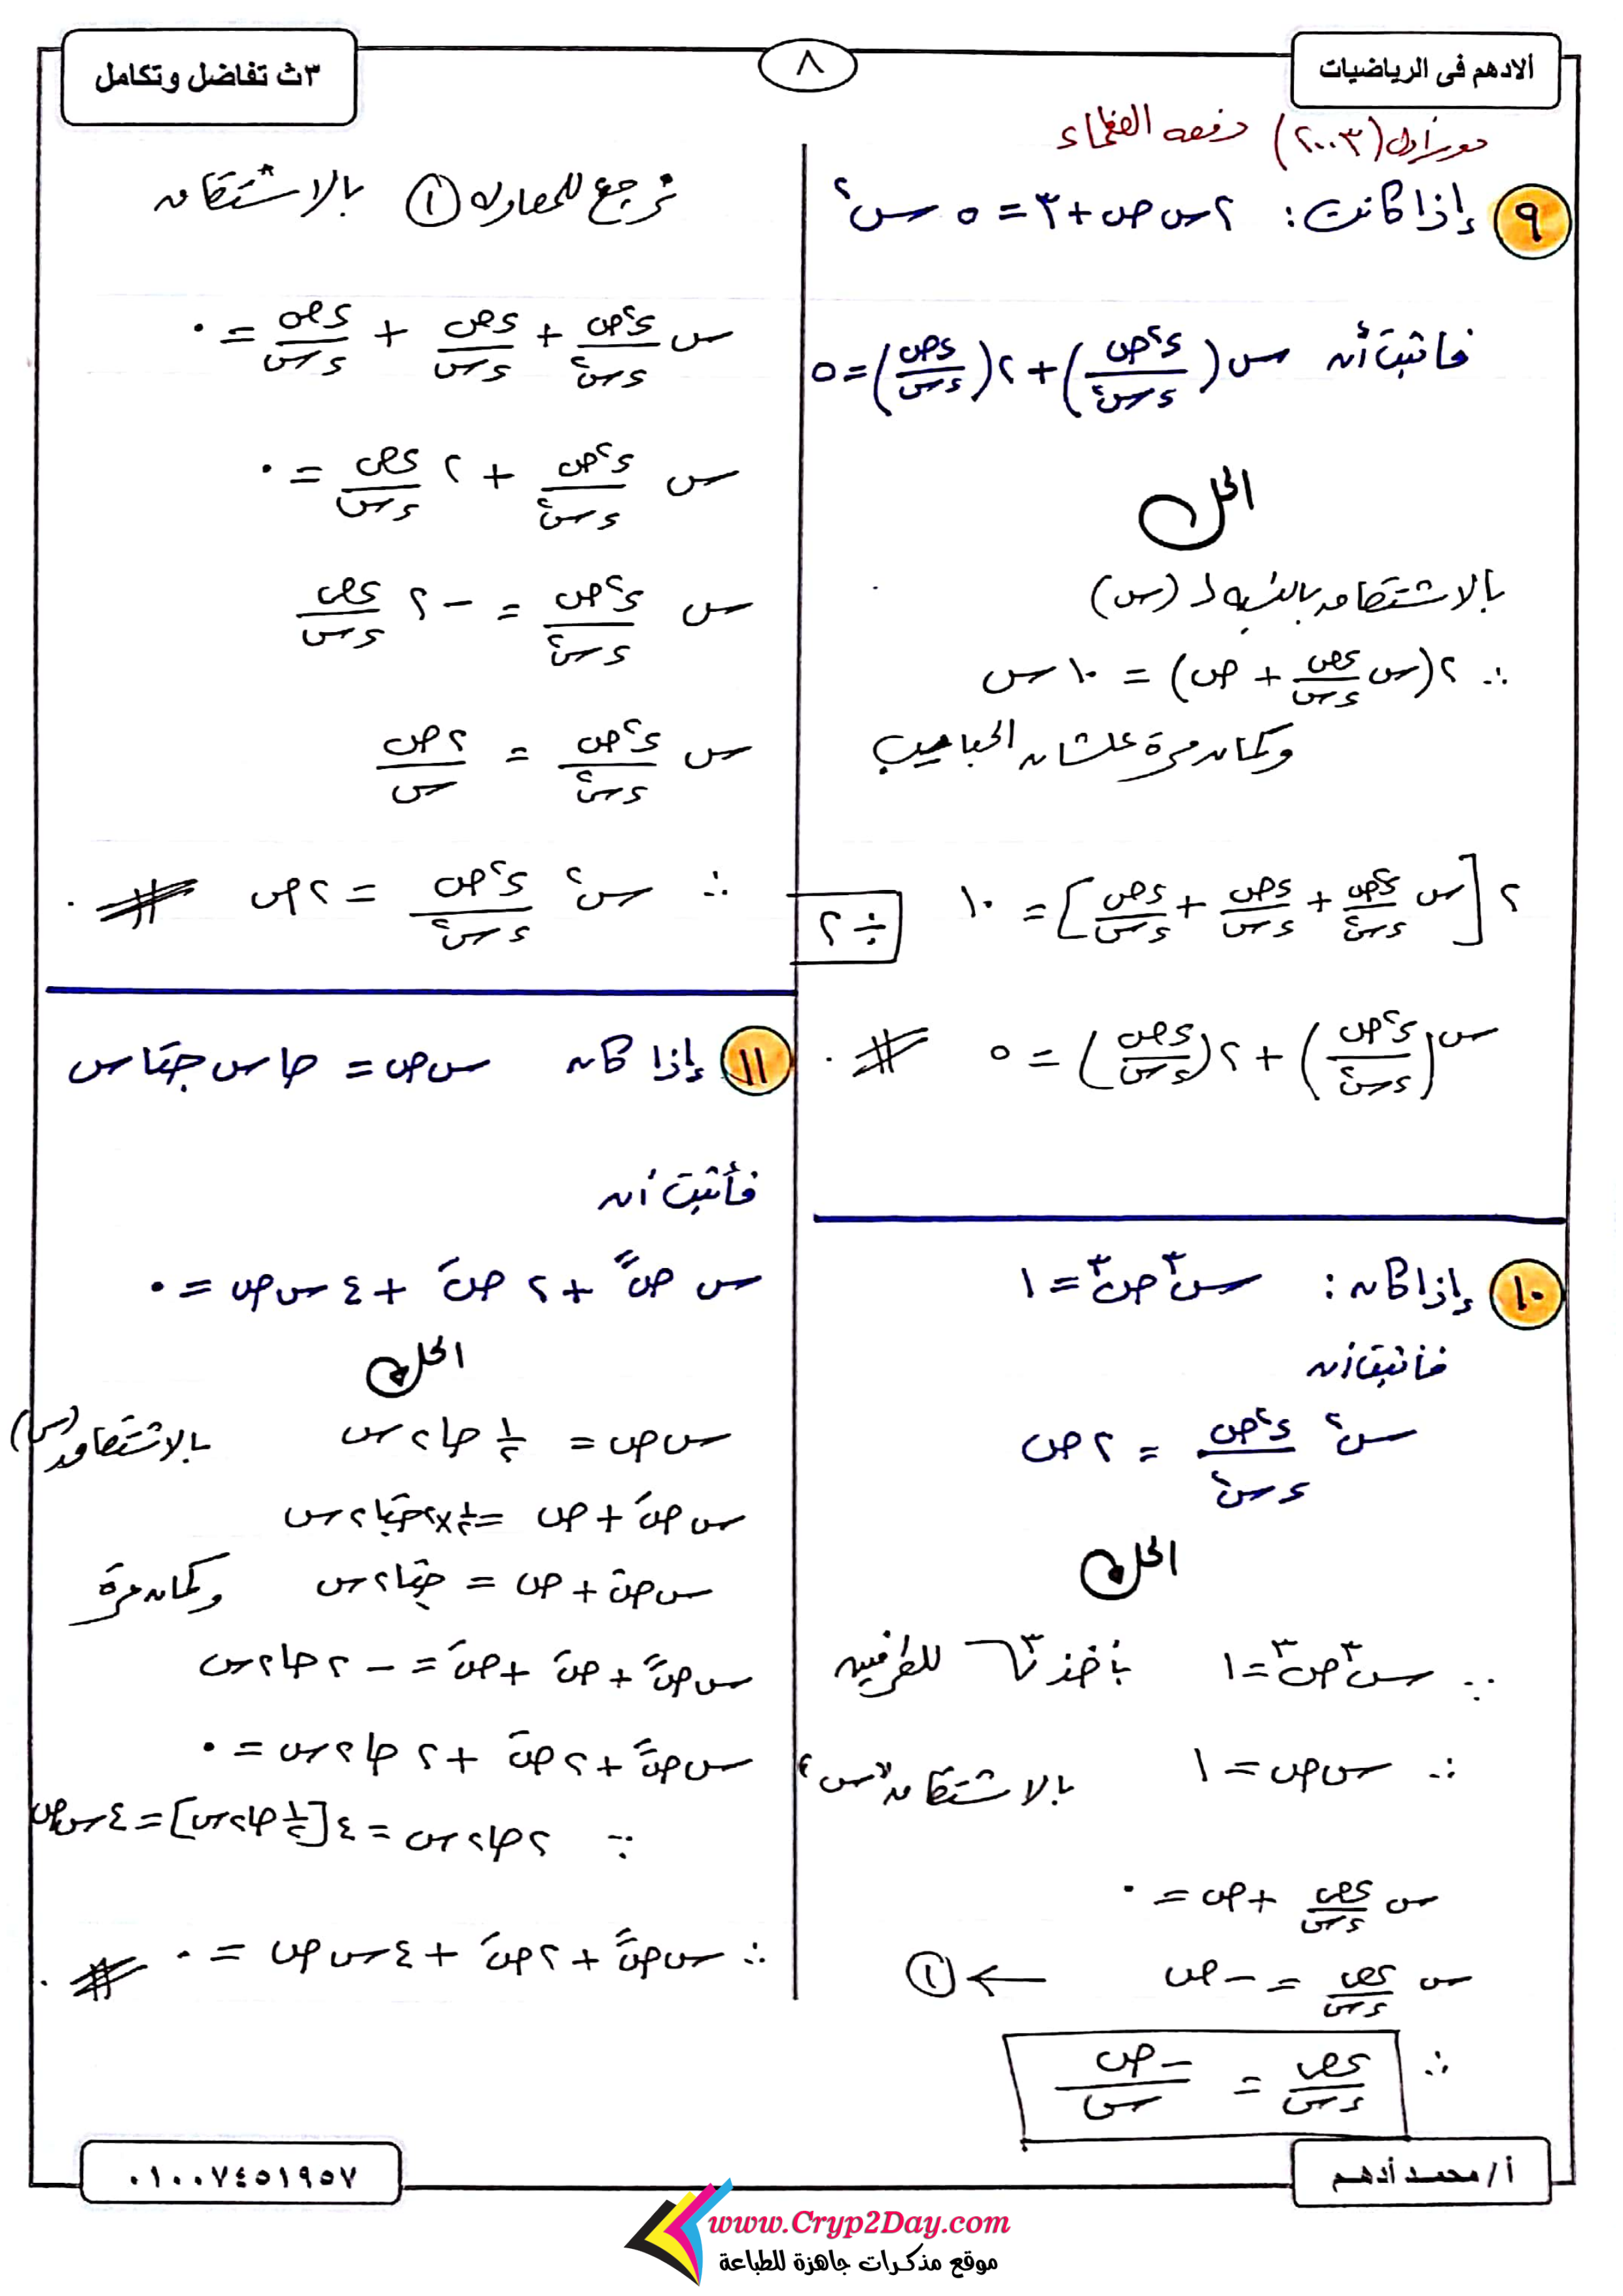 ألادهم فى الرياضيات
٨
٣ث تفاضل وتكامل
دور أول (٢٠٠٣) دفعه العظماء
٩ إذا كانت: ٢س ص + ٣ = ٥ س٢
فاثبت أن س (د٢ص/دس٢) + ٢(دص/دس) = ٥
الحل
بالاشتقاق بالنسبه لـ (س)
∴ ٢(س دص/دس + ص) = ١٠ س
وكمان مرة علشان الحبايب
٢[س د٢ص/دس٢ + دص/دس + دص/دس] = ١٠ ÷ ٢
س(د٢ص/دس٢) + ٢(دص/دس) = ٥ #
١٠ إذا كان: س٣ ص٣ = ١
فأثبت أن
س٢ د٢ص/دس٢ = ٢ص
الحل
∵ س٣ ص٣ = ١ بأخذ ∛ للطرفين
∴ س ص = ١ بالاشتقاق "س"
س دص/دس + ص = ٠
س دص/دس = -ص ← ①
∴ دص/دس = -ص/س
نرجع للمعادله ① بالاشتقاق
س د٢ص/دس٢ + دص/دس + دص/دس = ٠
س د٢ص/دس٢ + ٢ دص/دس = ٠
س د٢ص/دس٢ = -٢ دص/دس
س د٢ص/دس٢ = ٢ص/س
∴ س٢ د٢ص/دس٢ = ٢ص #
١١ إذا كان س ص = حا س جتا س
فأثبت أن
س صً + ٢ صَ + ٤ س ص = ٠
الحل
س ص = ١/٢ حا ٢س بالاشتقاق (س)
س صَ + ص = ١/٢ × ٢ جتا ٢س
س صَ + ص = جتا ٢س وكمان مرة
س صً + صَ + صَ = -٢ حا ٢س
س صً + ٢ صَ + ٢ حا ٢س = ٠
∵ ٢ حا ٢س = ٤[١/٢ حا ٢س] = ٤ س ص
∴ س صً + ٢ صَ + ٤ س ص = ٠ #
أ/ محمد أدهم
٠١٠٠٧٤٥١٩٥٧
www.Cryp2Day.com
موقع مذكرات جاهزة للطباعة